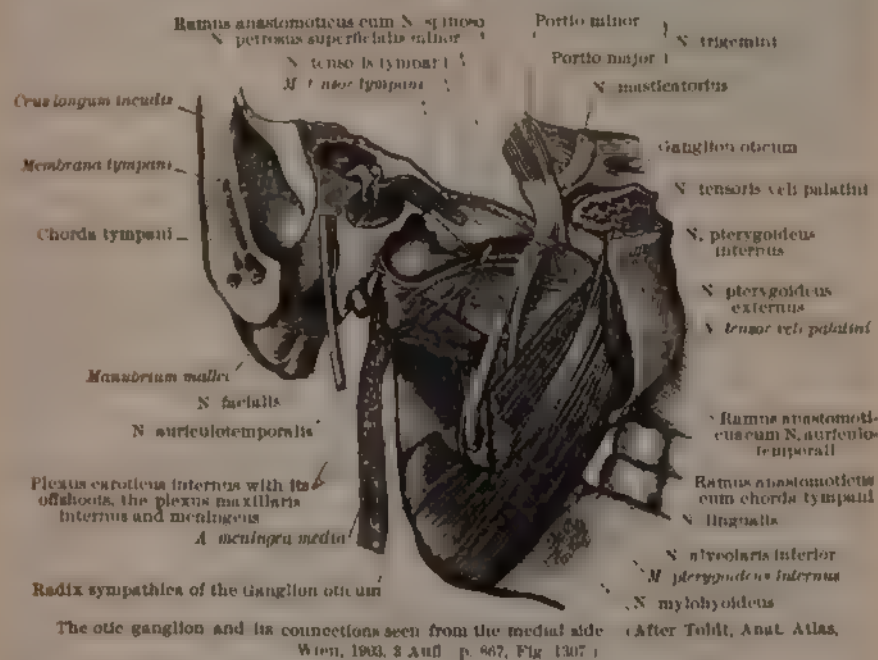 Ramus anastomoticus cum N. spinoso
N. petrosus superficialis minor
N. tensoris tympani
M. tensor tympani
Crus longum incudis
Membrana tympani
Chorda tympani
Manubrium mallei
N. facialis
N. auriculotemporalis
Plexus caroticus internus with its
offshoots, the plexus maxillaris
internus and meningeus
A. meningea media
Radix sympathica of the Ganglion oticum
Portio minor
N. trigemini
Portio major
N. masticatorius
Ganglion oticum
N. tensoris veli palatini
N. pterygoideus
internus
N. pterygoideus
externus
tensor veli palatini
Ramus anastomoti-
cus cum N. auriculo-
temporali
Ramus anastomoticus
cum chorda tympani
N. lingualis
N. alveolaris inferior
M. pterygoideus internus
N. mylohyoideus
The otic ganglion and its connections seen from the medial side (After Toldt, Anat. Atlas,
Wien, 1903, 3 Aufl. p. 867, Fig. 1307.)